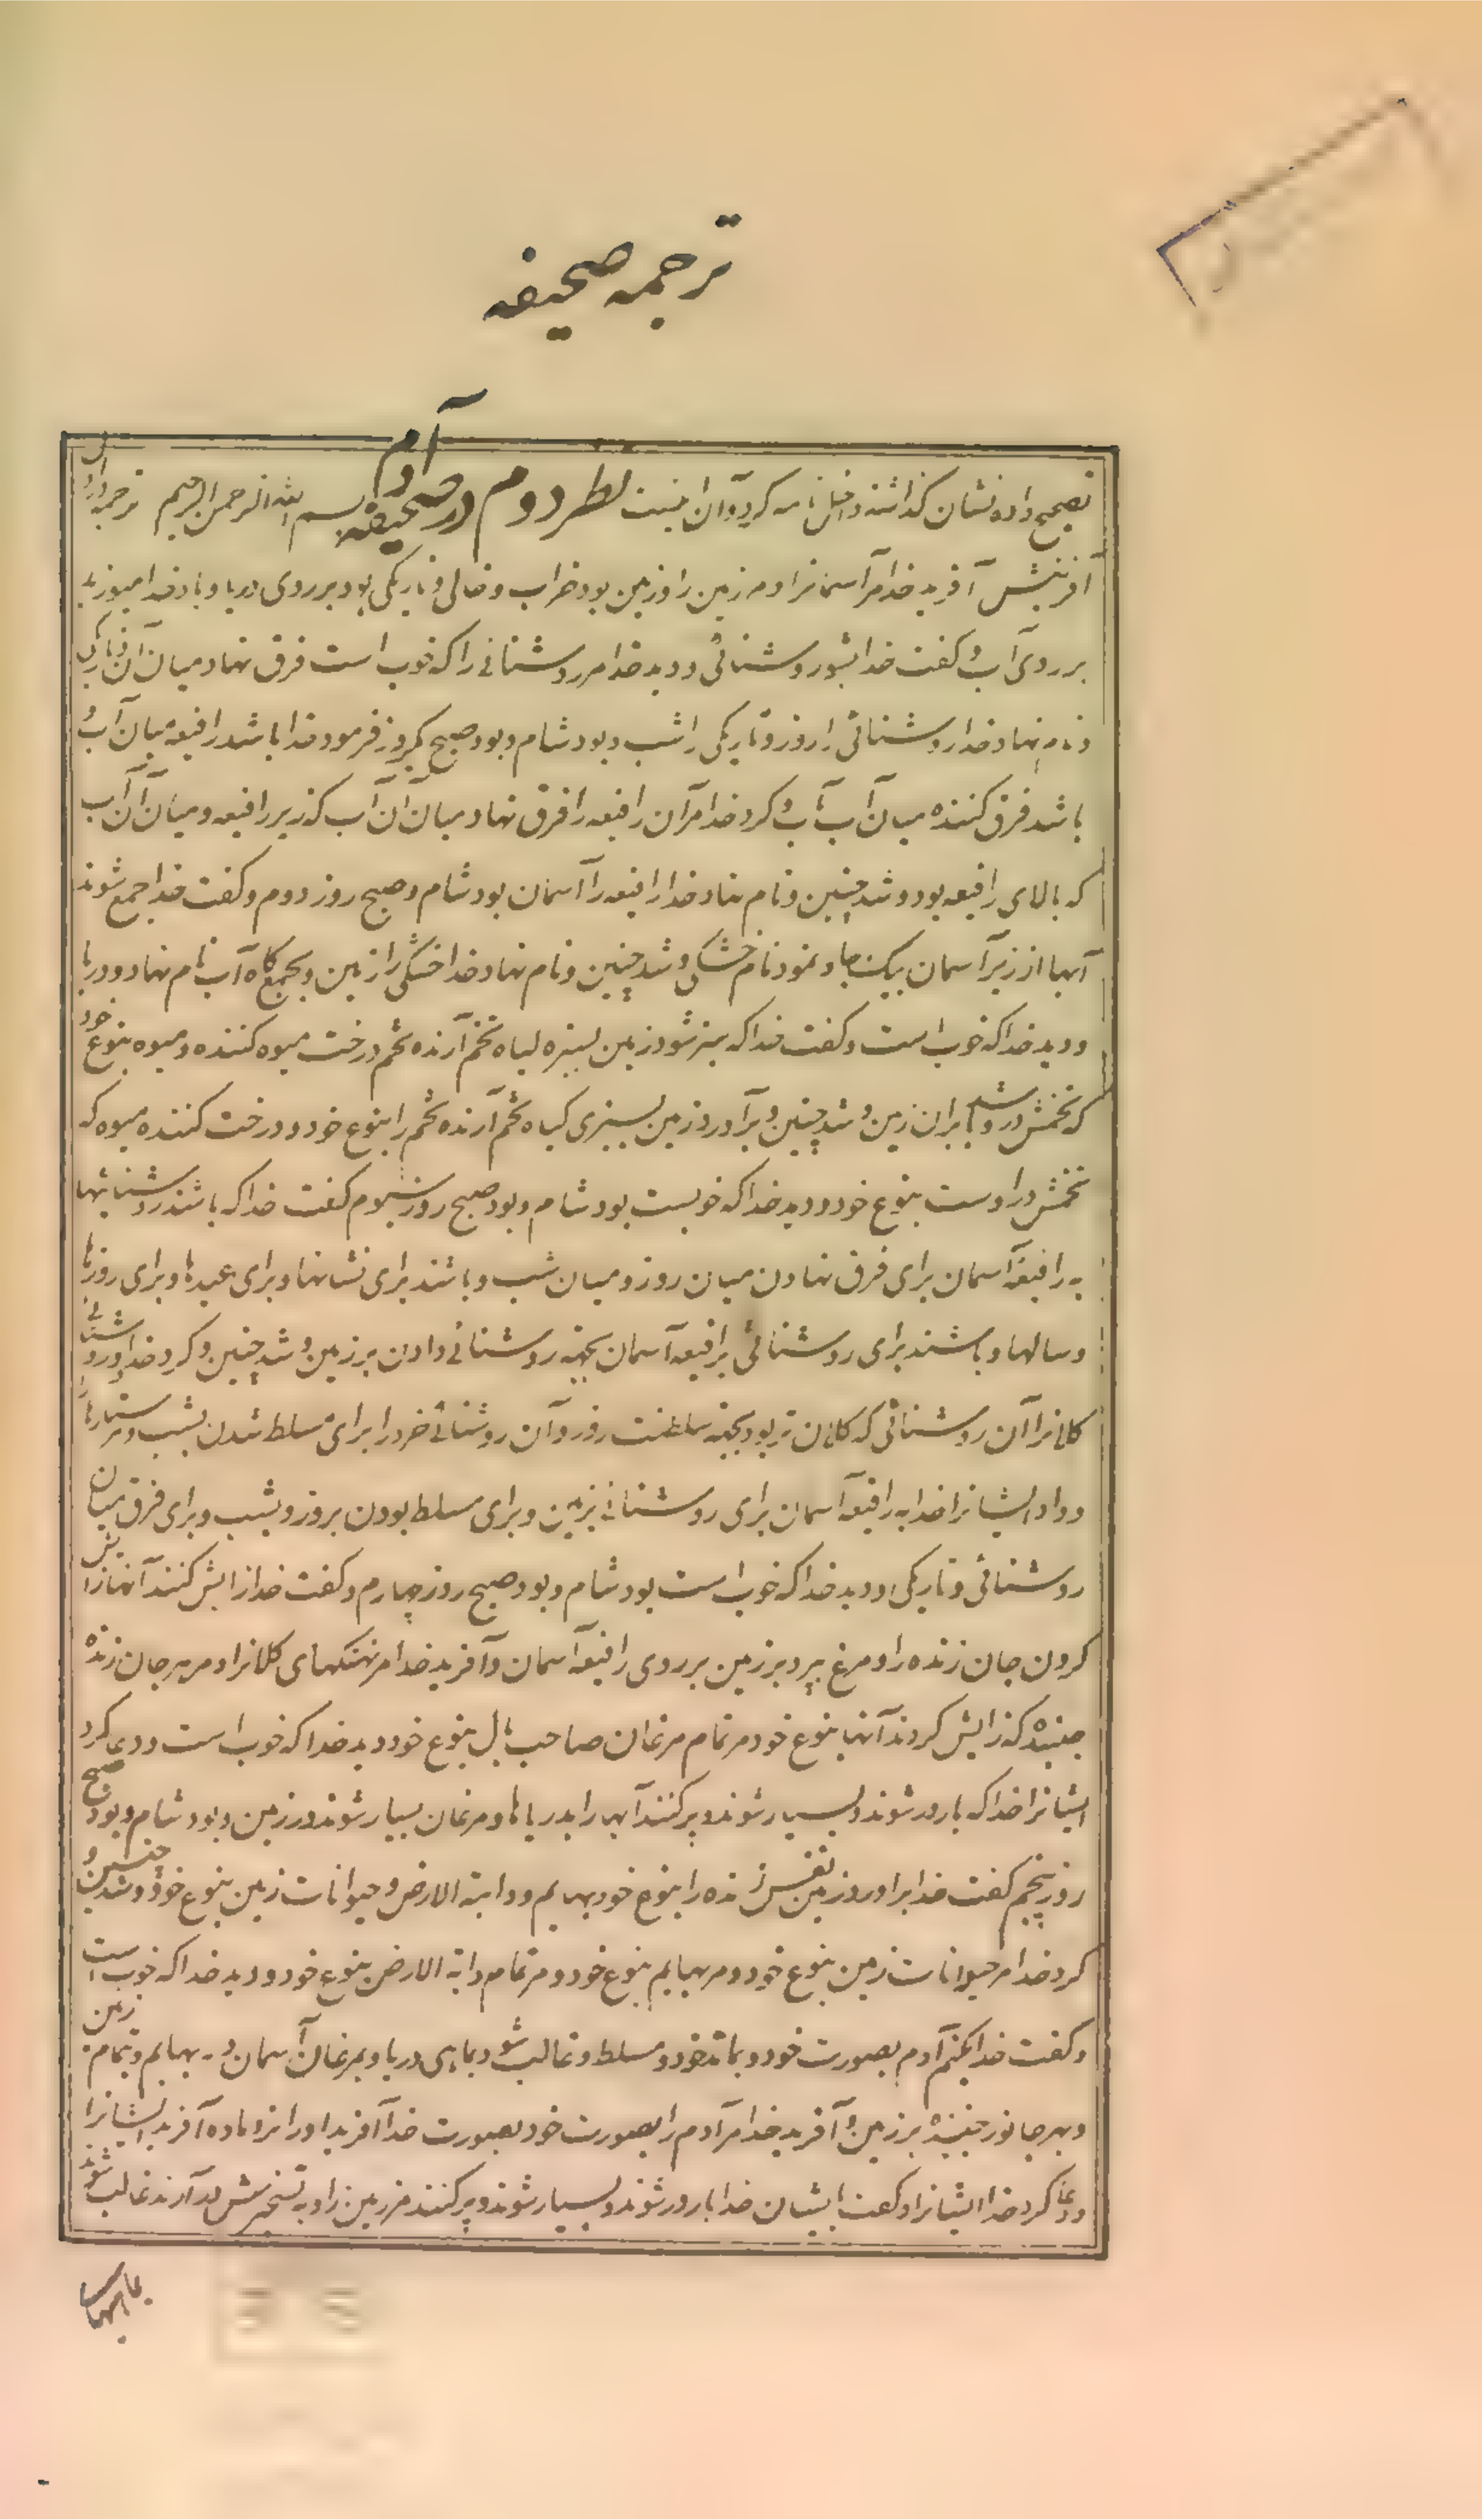 ترجمه صحیفه
تصحیح داده نشان گذاشته داخل نامه کرد و آن اینست سطر دوم در صحیفه آدم بسم الله الرحمن الرحیم ترجمه
آفرینش آفرید خدا مر آسمانرا و مر زمین را و زمین بود خراب و خالی و تاریکی بود بر روی دریا و باد خدا میوزید
بر روی آب و گفت خدا بشود روشنائی و دید خدا مر روشنائی را که خوب است فرق نهاد میان آن و تاریکی
و نام نهاد خدا روشنائی را روز و تاریکی را شب و بود شام و بود صبح یکروز فرمود خدا باشد رافیعه میان آب و
باشد فرق کننده میان آب بآب و کرد خدا مر آن رافیعه را فرق نهاد میان آن آب که زیر رافیعه و میان آن آب
که بالای رافیعه بود و شد چنین و نام نهاد خدا رافیعه را آسمان بود شام و صبح روز دوم و گفت خدا جمع شوند
آبها از زیر آسمان بیک جا و نمود نام خشکی و شد چنین و نام نهاد خدا خشکی را زمین و بجمع گاه آب نام نهاد دریا
و دید خدا که خوب است و گفت خدا که سبز شود زمین بسبزه گیاه تخم آرنده تخم درخت میوه کننده میوه بنوع خود
که تخمش در و باشد بران زمین و شد چنین و برآورد زمین بسبزی گیاه تخم آرنده تخم را بنوع خود و درخت کننده میوه که
تخمش در اوست بنوع خود و دید خدا که خوبست بود شام و بود صبح روز سیوم گفت خدا که باشند روشنائیها
به رافیعه آسمان برای فرق نهادن میان روز و میان شب و باشند برای نشانها و برای عیدها و برای روزها
و سالها و باشند برای روشنائی برافیعه آسمان بجهته روشنائی دادن بر زمین و شد چنین و کرد خدا دو روشنائی
کلانرا آن روشنائی که کلان تر بود بجهته سلطنت روز و آن روشنائی خرد را برای مسلط شدن بشب و ستارها
و داد ایشانرا خدا به رافیعه آسمان برای روشنائی بزمین و برای مسلط بودن بروز و بشب و برای فرق میان
روشنائی و تاریکی و دید خدا که خوب است بود شام و بود صبح روز چهارم و گفت خدا زایش کنند آبها زایش
کردن جان زنده را و مرغ بپرد بر زمین بر روی رافیعه آسمان و آفرید خدا مر نهنگهای کلانرا و مر هر جان زنده
جنبنده که زایش کردند آبها بنوع خود مر تمام مرغان صاحب بال بنوع خود و دید خدا که خوب است و دعا کرد
ایشانرا خدا که بارور شوند و بسیار شوند و پر کنند آبها را بدریاها و مرغان بسیار شوند در زمین و بود شام و بود صبح
روز پنجم گفت خدا برآورد زمین نفس زنده را بنوع خود بهایم و دابة الارض و حیوانات زمین بنوع خود و شد چنین و
کرد خدا مر حیوانات زمین بنوع خود و مر بهایم بنوع خود و مر تمام دابة الارض بنوع خود و دید خدا که خوب است
و گفت خدا بکنیم آدم بصورت خود و مانند خود و مسلط و غالب شود بماهی دریا و بمرغان آسمان و به بهایم و تمام زمین
و بهر جانور جنبنده بر زمین و آفرید خدا مر آدم را بصورت خود بصورت خدا آفرید او را نر و ماده آفرید ایشانرا
و دعا کرد خدا ایشانرا و گفت بایشان خدا بارور شوند و بسیار شوند و پر کنند مر زمین را و به تسخیرش درآرند غالب شوند